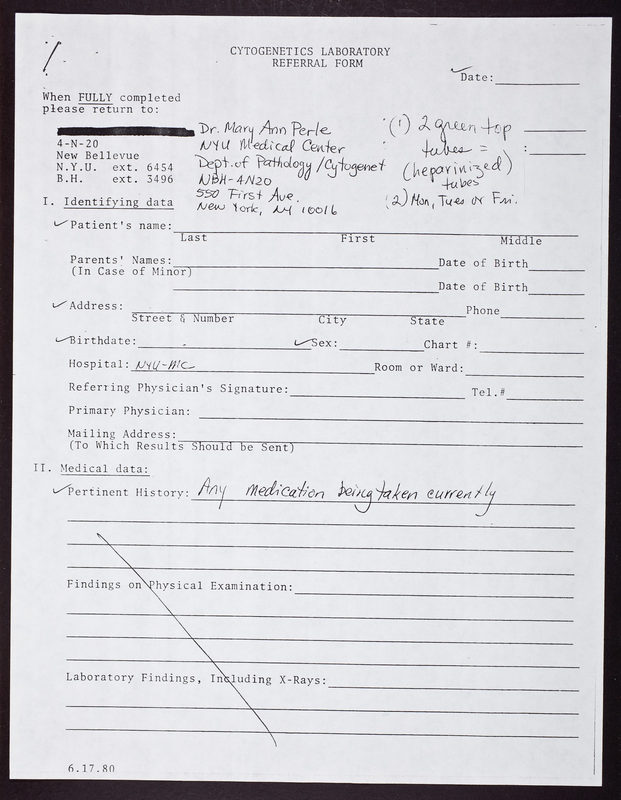 CYTOGENETICS LABORATORY
REFERRAL FORM
Date:
When FULLY completed
please return to:
Dr. Mary Ann Perle
NYU Medical Center
Dept. of Pathology/Cytogenet
NBH-4N20
550 First Ave.
New York, NY 10016
(1) 2 green top
tubes =
(heparinized)
tubes
(2) Mon, Tues or Fri.
4-N-20
New Bellevue
N.Y.U. ext. 6454
B.H. ext. 3496
I. Identifying data
Patient's name:
Last First Middle
Parents' Names: Date of Birth
(In Case of Minor)
Date of Birth
Address: Phone
Street & Number City State
Birthdate: Sex: Chart #:
Hospital: NYU-MC Room or Ward:
Referring Physician's Signature: Tel.#
Primary Physician:
Mailing Address:
(To Which Results Should be Sent)
II. Medical data:
Pertinent History: Any medication being taken currently
Findings on Physical Examination:
Laboratory Findings, Including X-Rays:
6.17.80